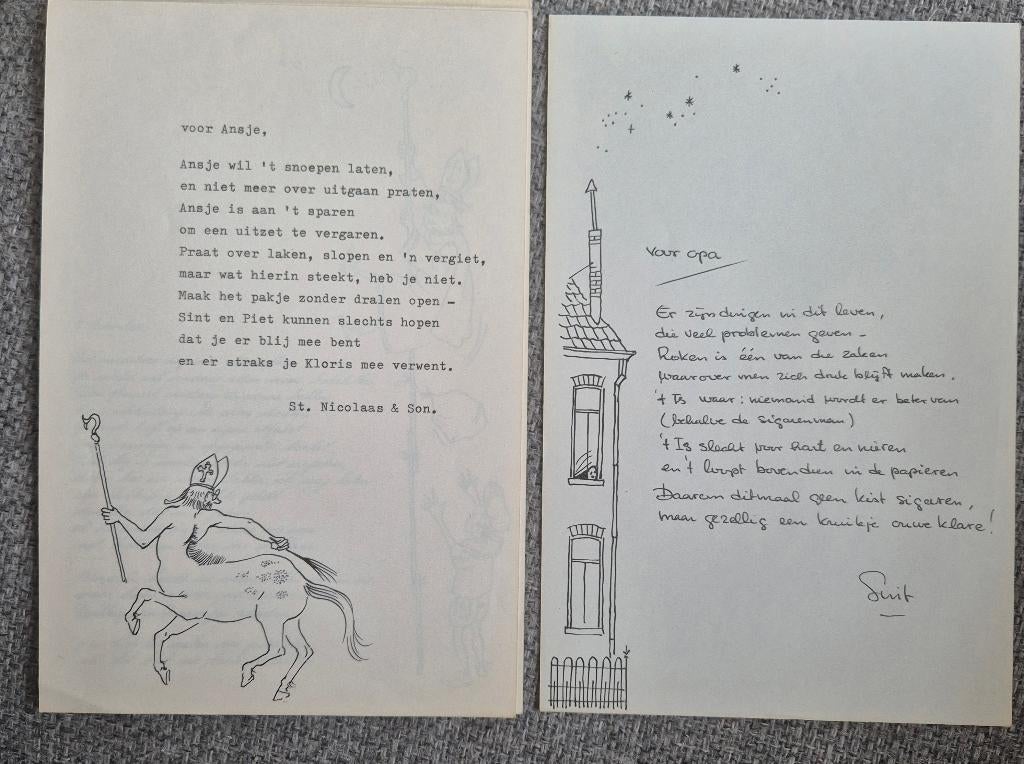 voor Ansje,
Ansje wil 't snoepen laten,
en niet meer over uitgaan praten,
Ansje is aan 't sparen
om een uitzet te vergaren.
Praat over laken, slopen en 'n vergiet,
maar wat hierin steekt, heb je niet.
Maak het pakje zonder dralen open -
Sint en Piet kunnen slechts hopen
dat je er blij mee bent
en er straks je Kloris mee verwent.
St. Nicolaas & Son.
Voor opa
Er zijn dingen in dit leven,
die veel problemen geven -
Roken is één van die zaken
waarover men zich druk blijft maken.
't Is waar: niemand wordt er beter van
(behalve de sigarenman)
't Is slecht voor hart en nieren
en 't loopt bovendien in de papieren
Daarom ditmaal geen kist sigaren,
maar gezellig een kruikje ouwe klare!
Sint